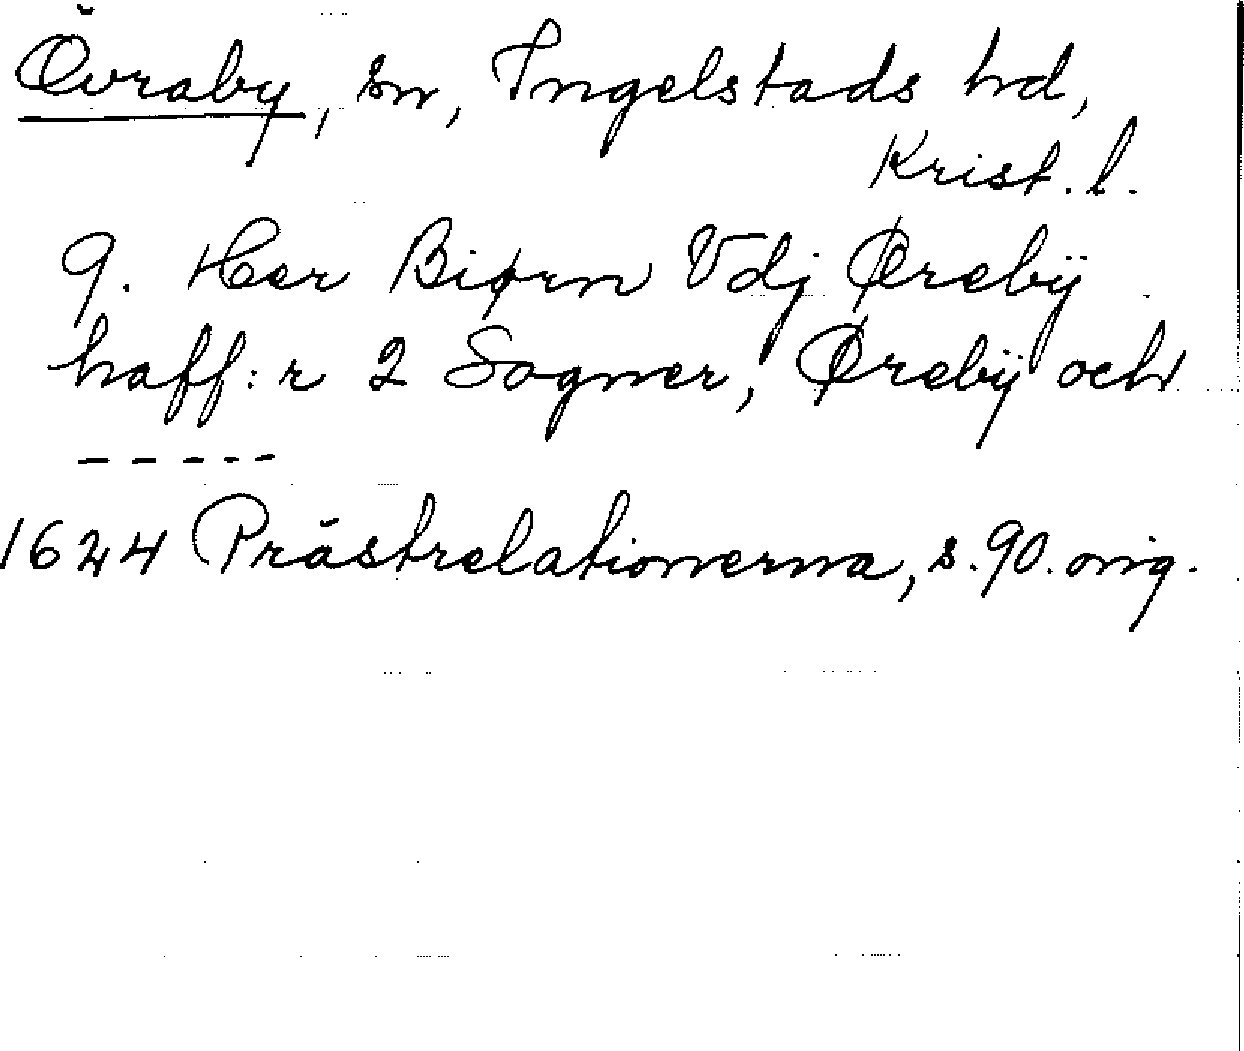 Övraby, sn, Ingelstads hd,
Krist. l.
9. Her Biørn Vdj Ørebÿ
haff:r 2 Sogner, Ørebÿ och
- - - - -
1624 Prästrelationerna, s. 90. orig.